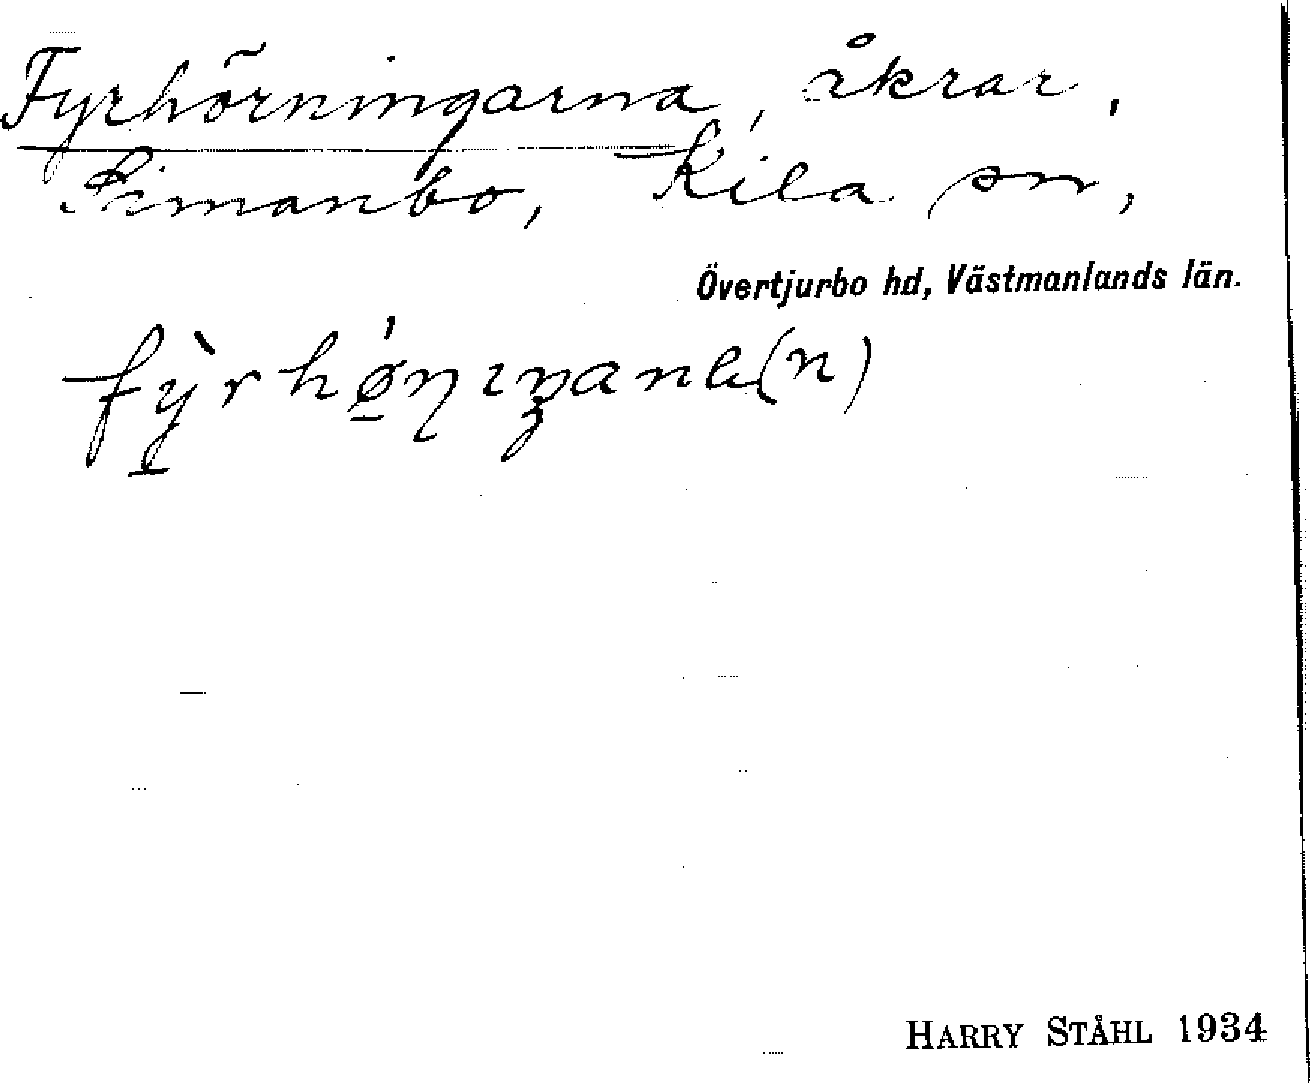 Fyrhörningarna, åkrar,
Simanbo, Kila sn,
Övertjurbo hd, Västmanlands län.
HARRY STÅHL 1934